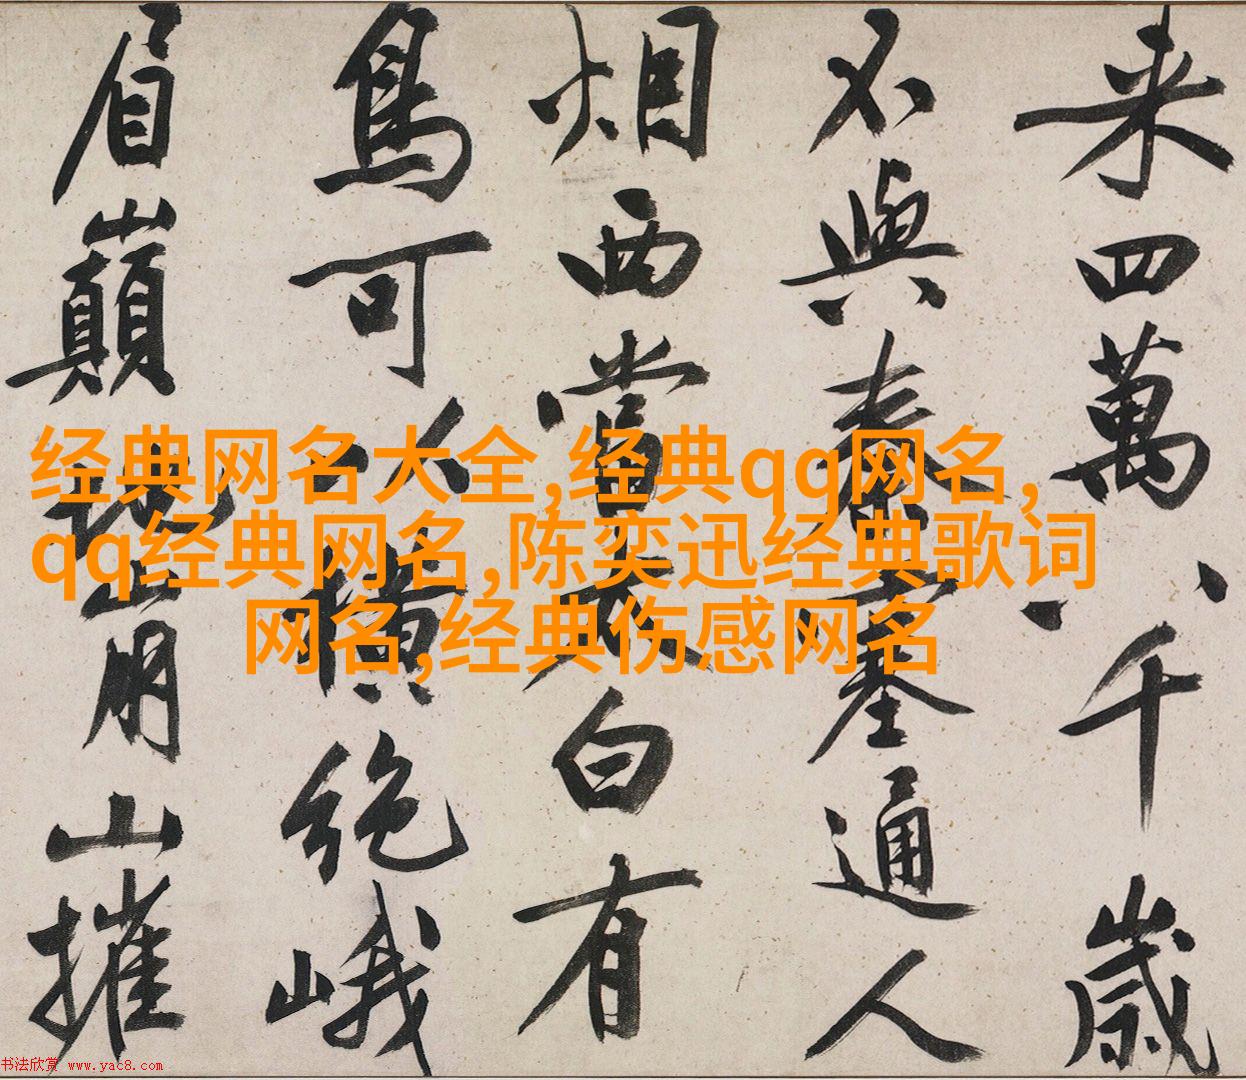 来四萬八千歲
不與秦塞通人
烟西當太白有
鳥可以橫絕峨
眉巔地崩山摧
经典网名大全,经典qq网名,
qq经典网名,陈奕迅经典歌词
网名,经典伤感网名
书法欣赏 www.yac8.com